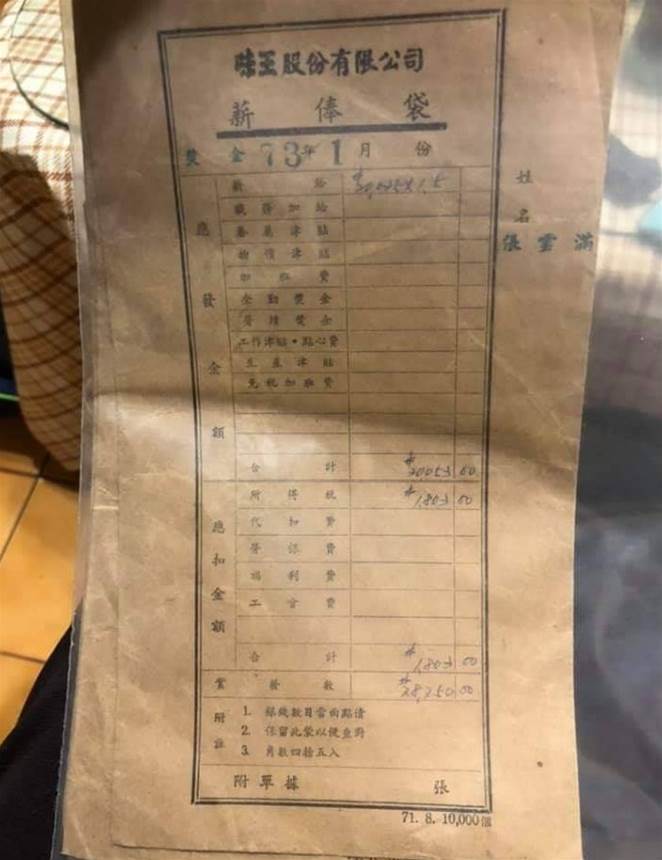 味王股份有限公司
薪俸袋
獎金 73年 1月份
姓名
張雲滿
應發金額
薪給
職務加給
津貼
物價津貼
加班費
全勤獎金
獎金
工作津貼・點心費
生產津貼
免稅加班費
合計 $30053 00
應扣金額
所得稅 $1,803 00
代扣費
勞保費
福利費
工會費
合計 $1,803 00
實發數 $28,250 00
附註
1. 銀錢數目當面點清
2. 保留此袋以便查對
3. 角數四捨五入
附單據 張
71. 8. 10,000個